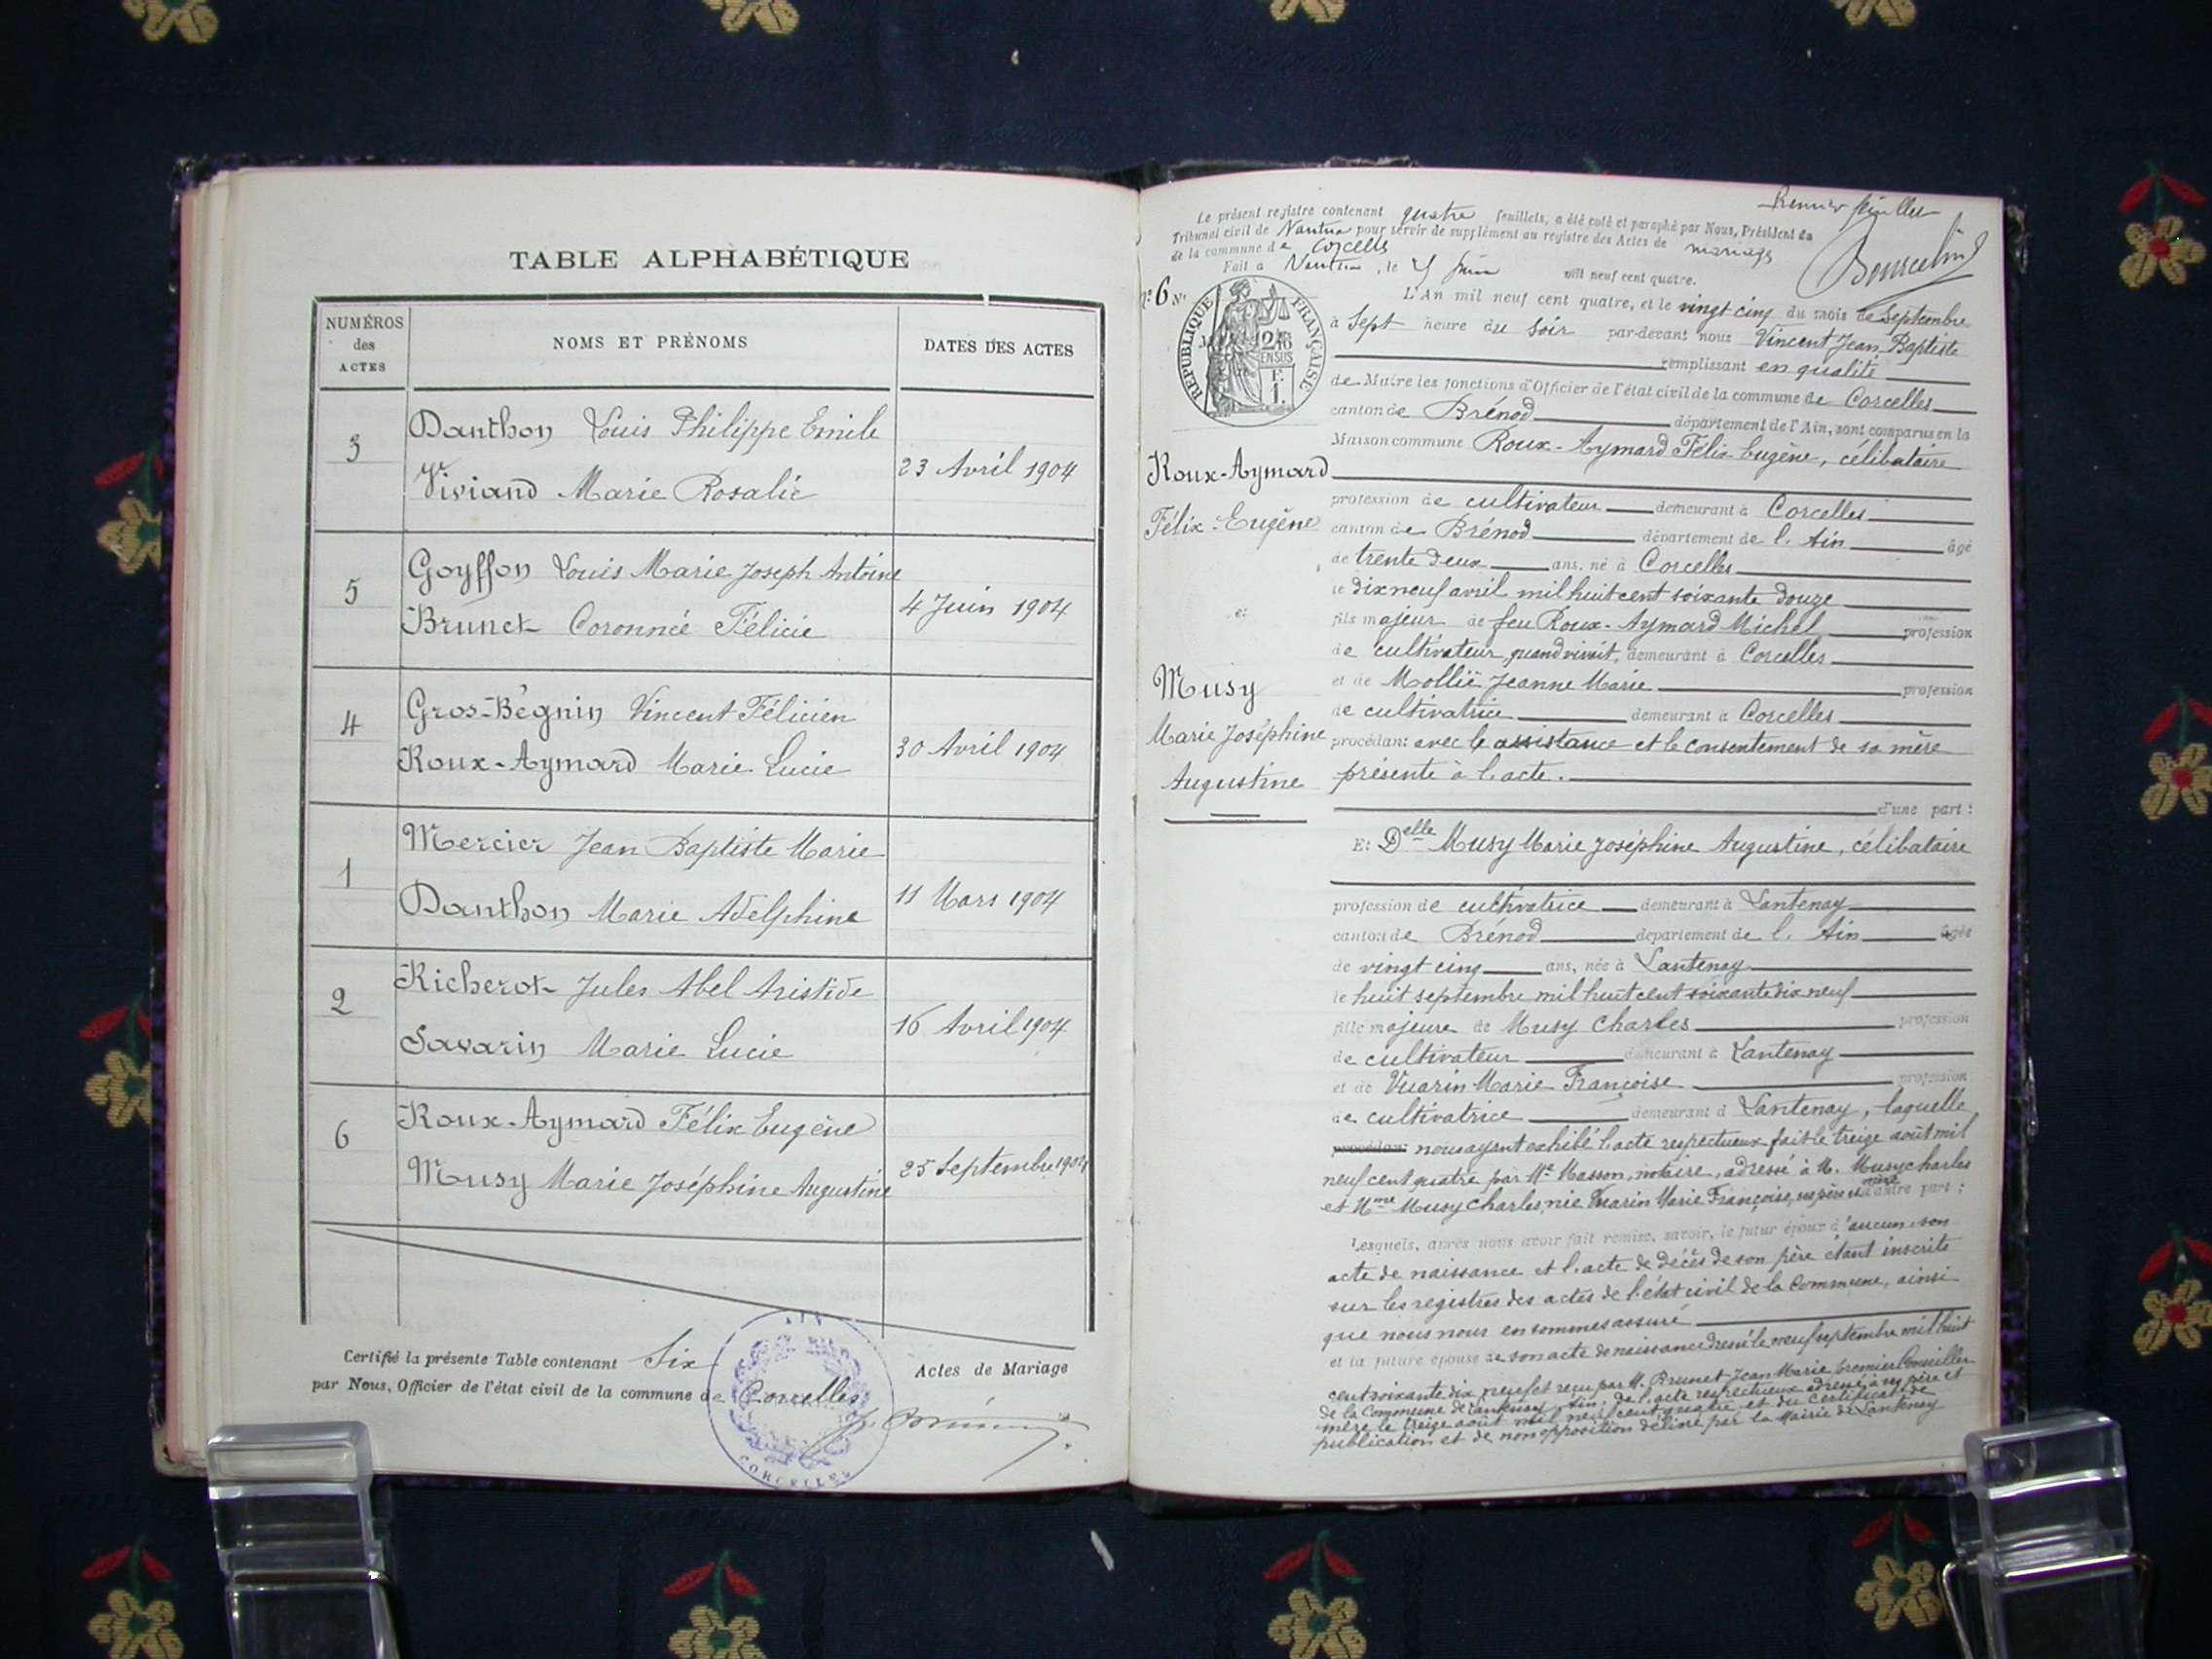 TABLE ALPHABÉTIQUE
NUMÉROS des ACTES
NOMS ET PRÉNOMS
DATES DES ACTES
3
Danthon Louis Philippe Emile
Viviand Marie Rosalie
23 Avril 1904
5
Goyffon Louis Marie Joseph Antoine
Brunet Coronnée Félicie
4 Juin 1904
4
Gros-Bégnin Vincent Félicien
Roux-Aymard Marie Lucie
30 Avril 1904
1
Mercier Jean Baptiste Marie
Danthon Marie Adelphine
11 Mars 1904
2
Richerot Jules Abel Aristide
Savarin Marie Lucie
16 Avril 1904
6
Roux-Aymard Félix Eugène
Musy Marie Joséphine Augustine
25 Septembre 1904
Certifié la présente Table contenant Six Actes de Mariage
par Nous, Officier de l'état civil de la commune de Corcelles
AIN
CORCELLES
Premier feuillet
Le présent registre contenant quatre feuillets, a été coté et paraphé par Nous, Président du
Tribunal civil de Nantua pour servir de supplément au registre des Actes de mariages
de la commune de Corcelles
Fait à Nantua, le Juin mil neuf cent quatre.
N° 6
RÉPUBLIQUE FRANÇAISE
L'An mil neuf cent quatre, et le vingt cinq du mois de Septembre
à Sept heure du Soir par-devant nous Vincent Jean Baptiste
remplissant en qualité
de Maire les fonctions d'Officier de l'état civil de la commune de Corcelles
canton de Brénod département de l'Ain, sont comparus en la
Maison commune Roux-Aymard Félix Eugène, célibataire
Roux-Aymard
Félix-Eugène
et
Musy
Marie Joséphine
Augustine
profession de cultivateur demeurant à Corcelles
canton de Brénod département de l'Ain âgé
de trente deux ans, né à Corcelles
le dix neuf avril mil huit cent soixante douze
fils majeur de feu Roux-Aymard Michel profession
de cultivateur, quand vivait, demeurant à Corcelles
et de Mollié Jeanne Marie profession
de cultivatrice demeurant à Corcelles
procédant avec le assistance et le consentement de sa mère
présente à l'acte.
d'une part :
Et Delle Musy Marie Joséphine Augustine, célibataire
profession de cultivatrice demeurant à Lantenay
canton de Brénod département de l'Ain âgée
de vingt cinq ans, née à Lantenay
le huit septembre mil huit cent soixante dix neuf
fille majeure de Musy Charles profession
de cultivateur demeurant à Lantenay
et de Vuarin Marie Françoise profession
de cultivatrice demeurant à Lantenay, laquelle
procédant nous ayant exhibé l'acte respectueux fait le treize août mil
neuf cent quatre par Me Masson, notaire, adressé à M. Musy Charles
et Mme Musy Charles, née Vuarin Marie Françoise, ses père et mère d'autre part :
Lesquels, après nous avoir fait remise, savoir, le futur époux d'aucun, son
acte de naissance et l'acte de décès de son père étant inscrits
sur les registres des actes de l'état civil de la Commune, ainsi
que nous nous en sommes assuré
et la future épouse de son acte de naissance dressé le neuf septembre mil huit
cent soixante dix neuf et reçu par M. Brunet Jean Marie premier Conseiller
de la Commune de Lantenay, Ain; de l'acte respectueux adressé à ses père et
mère le treize août mil neuf cent quatre et du certificat de
publication et de non opposition délivré par la Mairie de Lantenay